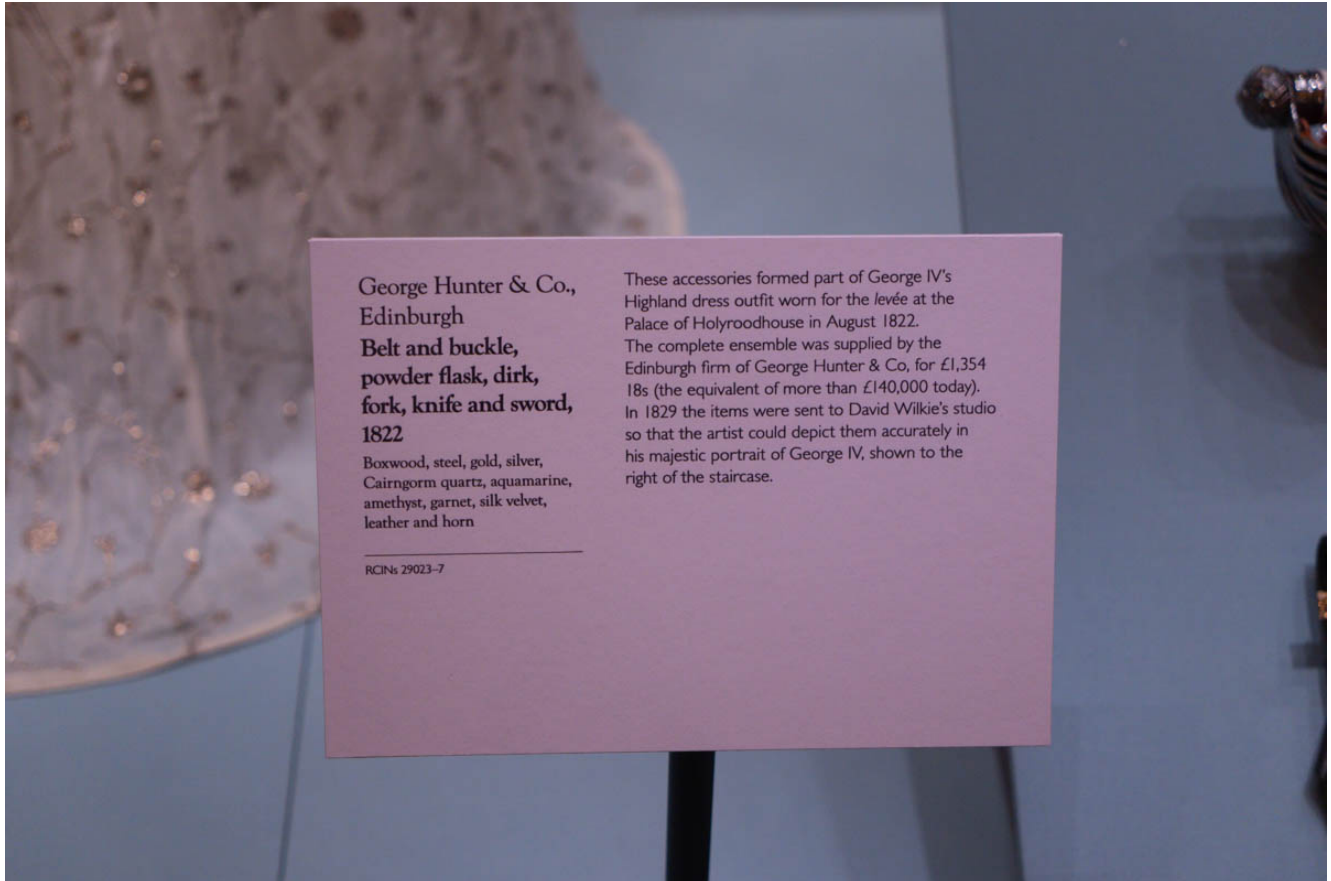 George Hunter & Co.,
Edinburgh
Belt and buckle,
powder flask, dirk,
fork, knife and sword,
1822
Boxwood, steel, gold, silver,
Cairngorm quartz, aquamarine,
amethyst, garnet, silk velvet,
leather and horn
RCINs 29023–7
These accessories formed part of George IV's
Highland dress outfit worn for the levée at the
Palace of Holyroodhouse in August 1822.
The complete ensemble was supplied by the
Edinburgh firm of George Hunter & Co, for £1,354
18s (the equivalent of more than £140,000 today).
In 1829 the items were sent to David Wilkie's studio
so that the artist could depict them accurately in
his majestic portrait of George IV, shown to the
right of the staircase.